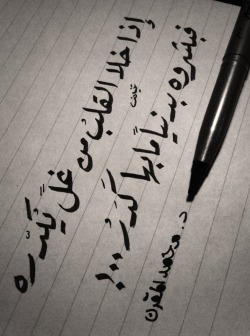 إذا خلا القلبُ من غلٍّ يُكدّره
فبشّروه بدنيا ما بها كَدَرُ..!
د. محمد المقرن